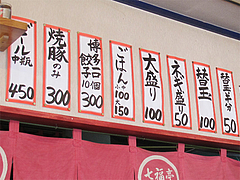 ビール中瓶
450
焼豚のみ
300
博多一口餃子10個
300
ごはん
小100
大150
大盛り
100
ネギ盛り
50
替玉
100
替玉半分
50
七福亭